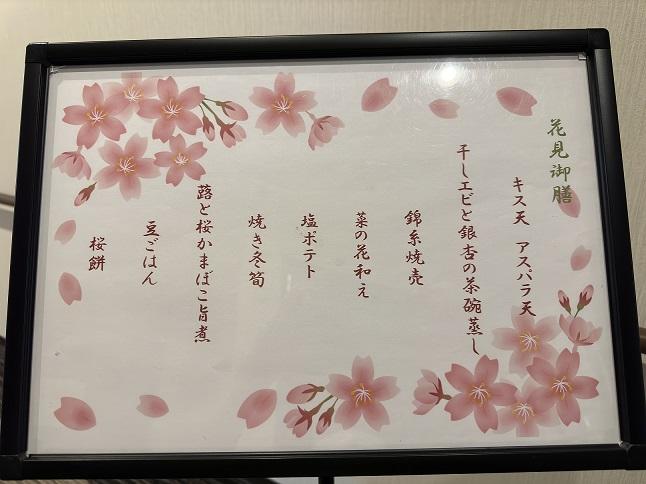 花見御膳
キス天 アスパラ天
干しエビと銀杏の茶碗蒸し
錦糸焼売
菜の花和え
塩ポテト
焼き冬筍
蕗と桜かまぼこ旨煮
豆ごはん
桜餅